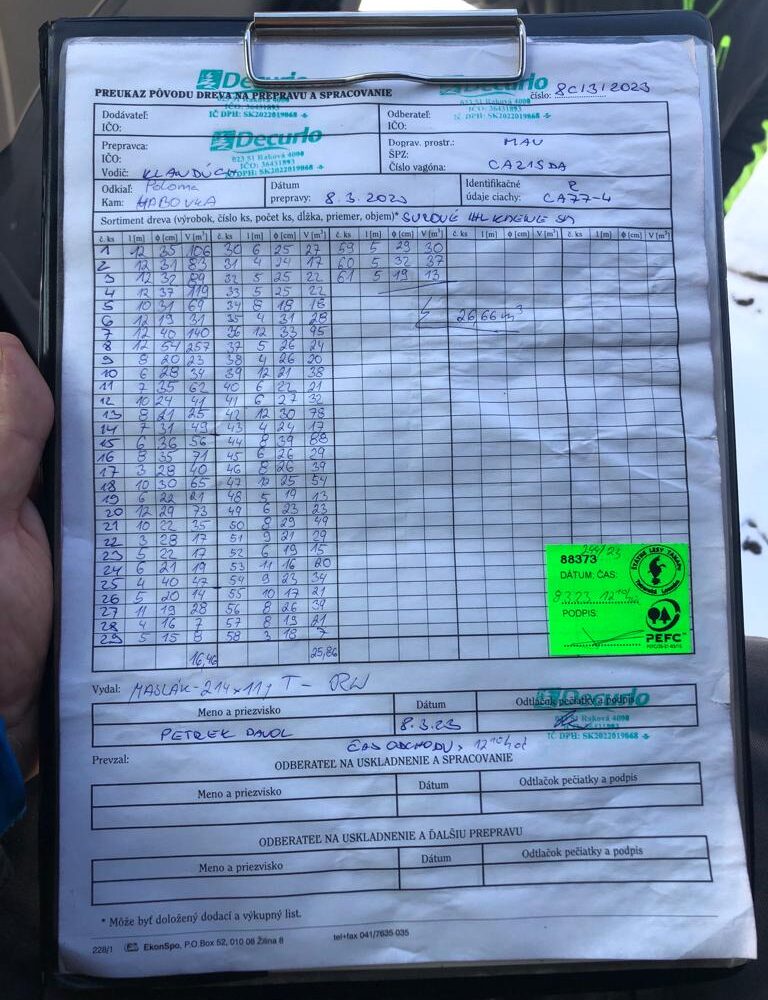 Decurlo
Decurlo
PREUKAZ PÔVODU DREVA NA PREPRAVU A SPRACOVANIE
číslo: 8C/3/2023
023 51 Raková 4090
IČO: 36431893
IČ DPH: SK2022019868
Dodávateľ:
IČO:
Odberateľ:
IČO:
Decurlo
023 51 Raková 4090
IČO: 36431893
IČ DPH: SK2022019868
Prepravca:
IČO:
Vodič:
Doprav. prostr.: MAN
ŠPZ:
Číslo vagóna: CA215DA
Odkiaľ: Poloma
Kam: HABOVKA
Dátum
prepravy: 8.3.2023
Identifikačné R
údaje ciachy: CA77-4
Sortiment dreva (výrobok, číslo ks, počet ks, dĺžka, priemer, objem)* SUROVÉ IHL
č. ks l [m] ϕ [cm] V [m³] č. ks l [m] ϕ [cm] V [m³] č. ks l [m] ϕ [cm] V [m³] č. ks l [m] ϕ [cm] V [m³] č. ks l [m] ϕ [cm] V [m³]
1 12 35 106 30 6 25 27 59 5 29 30
2 12 31 83 31 4 24 17 60 5 32 37
3 12 32 89 32 5 25 22 61 5 19 13
4 12 37 119 33 5 25 22
5 10 31 69 34 8 18 18
6 12 19 31 35 4 31 28 26,66 m³
7 12 40 140 36 12 33 95
8 12 54 257 37 5 26 24
9 8 20 23 38 4 26 20
10 6 28 34 39 12 21 38
11 7 35 62 40 6 22 21
12 10 24 41 41 6 27 32
13 8 21 25 42 12 30 78
14 7 31 49 43 4 24 17
15 6 36 56 44 8 39 88
16 8 35 71 45 6 26 29
17 3 28 40 46 8 26 39
18 10 30 65 47 12 25 54
19 6 22 21 48 5 19 13
20 12 29 73 49 6 23 23
21 10 22 35 50 8 29 49
22 3 28 17 51 9 21 29
23 5 22 17 52 6 19 15
24 6 21 19 53 11 16 20
25 4 40 47 54 9 23 34
26 5 20 14 55 10 17 21
27 11 19 28 56 8 26 39
28 4 16 7 57 8 19 21
29 5 15 8 58 3 18 7
16,46 25,86
88373
DÁTUM: ČAS:
8.3.23 12¹⁰
PODPIS:
ŠTÁTNE LESY TANAPU
PEFC
Vydal: MASLÁK - 214 x 11, T - RW
Meno a priezvisko Dátum Odtlačok pečiatky a podpis
PETREK PAVOL 8.3.23
Decurlo
023 51 Raková 4090
IČ DPH: SK2022019868
Prevzal: ČAS ODCHODU, 12¹⁰ hod
ODBERATEĽ NA USKLADNENIE A SPRACOVANIE
Meno a priezvisko Dátum Odtlačok pečiatky a podpis
ODBERATEĽ NA USKLADNENIE A ĎALŠIU PREPRAVU
Meno a priezvisko Dátum Odtlačok pečiatky a podpis
* Môže byť doložený dodací a výkupný list.
228/1 EkonSpo, P.O.Box 52, 010 08 Žilina 8 tel+fax 041/7635 035